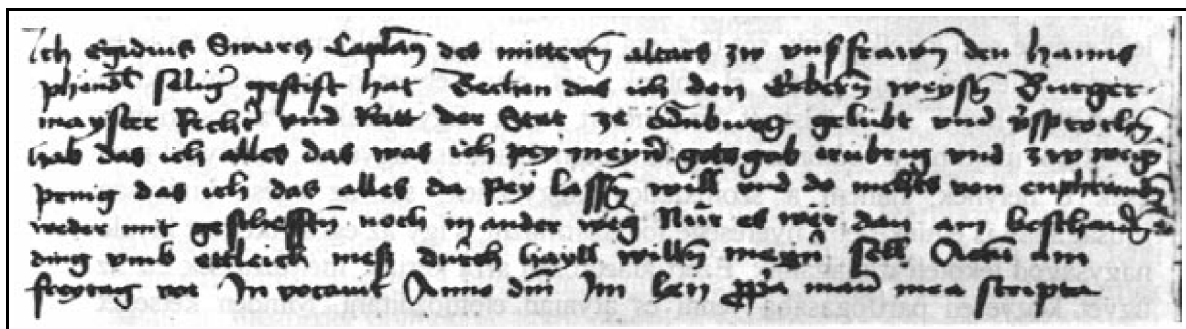 Ich Egidius Swarcz Caplan des mittern altars zw unsfrawn den hanns
phendl selig gestift hat Bechen das ich den Erbern weysen Burger
mayster Richter und Ratt der Stat ze Odenburg gelubt und versprochen
hab das ich alles das was ich pey meyner gots gab erubrig und zw weg
preng das ich das alles da pey lassen will und do nichts von enphremden
weder mit gescheften noch in ander weg Nur es wer dan am beschaiden
ding umb ettleich mess durch hayll willen meyner sell Actum am
freytag vor Invocavit Anno dm Im propria manu mea scripta